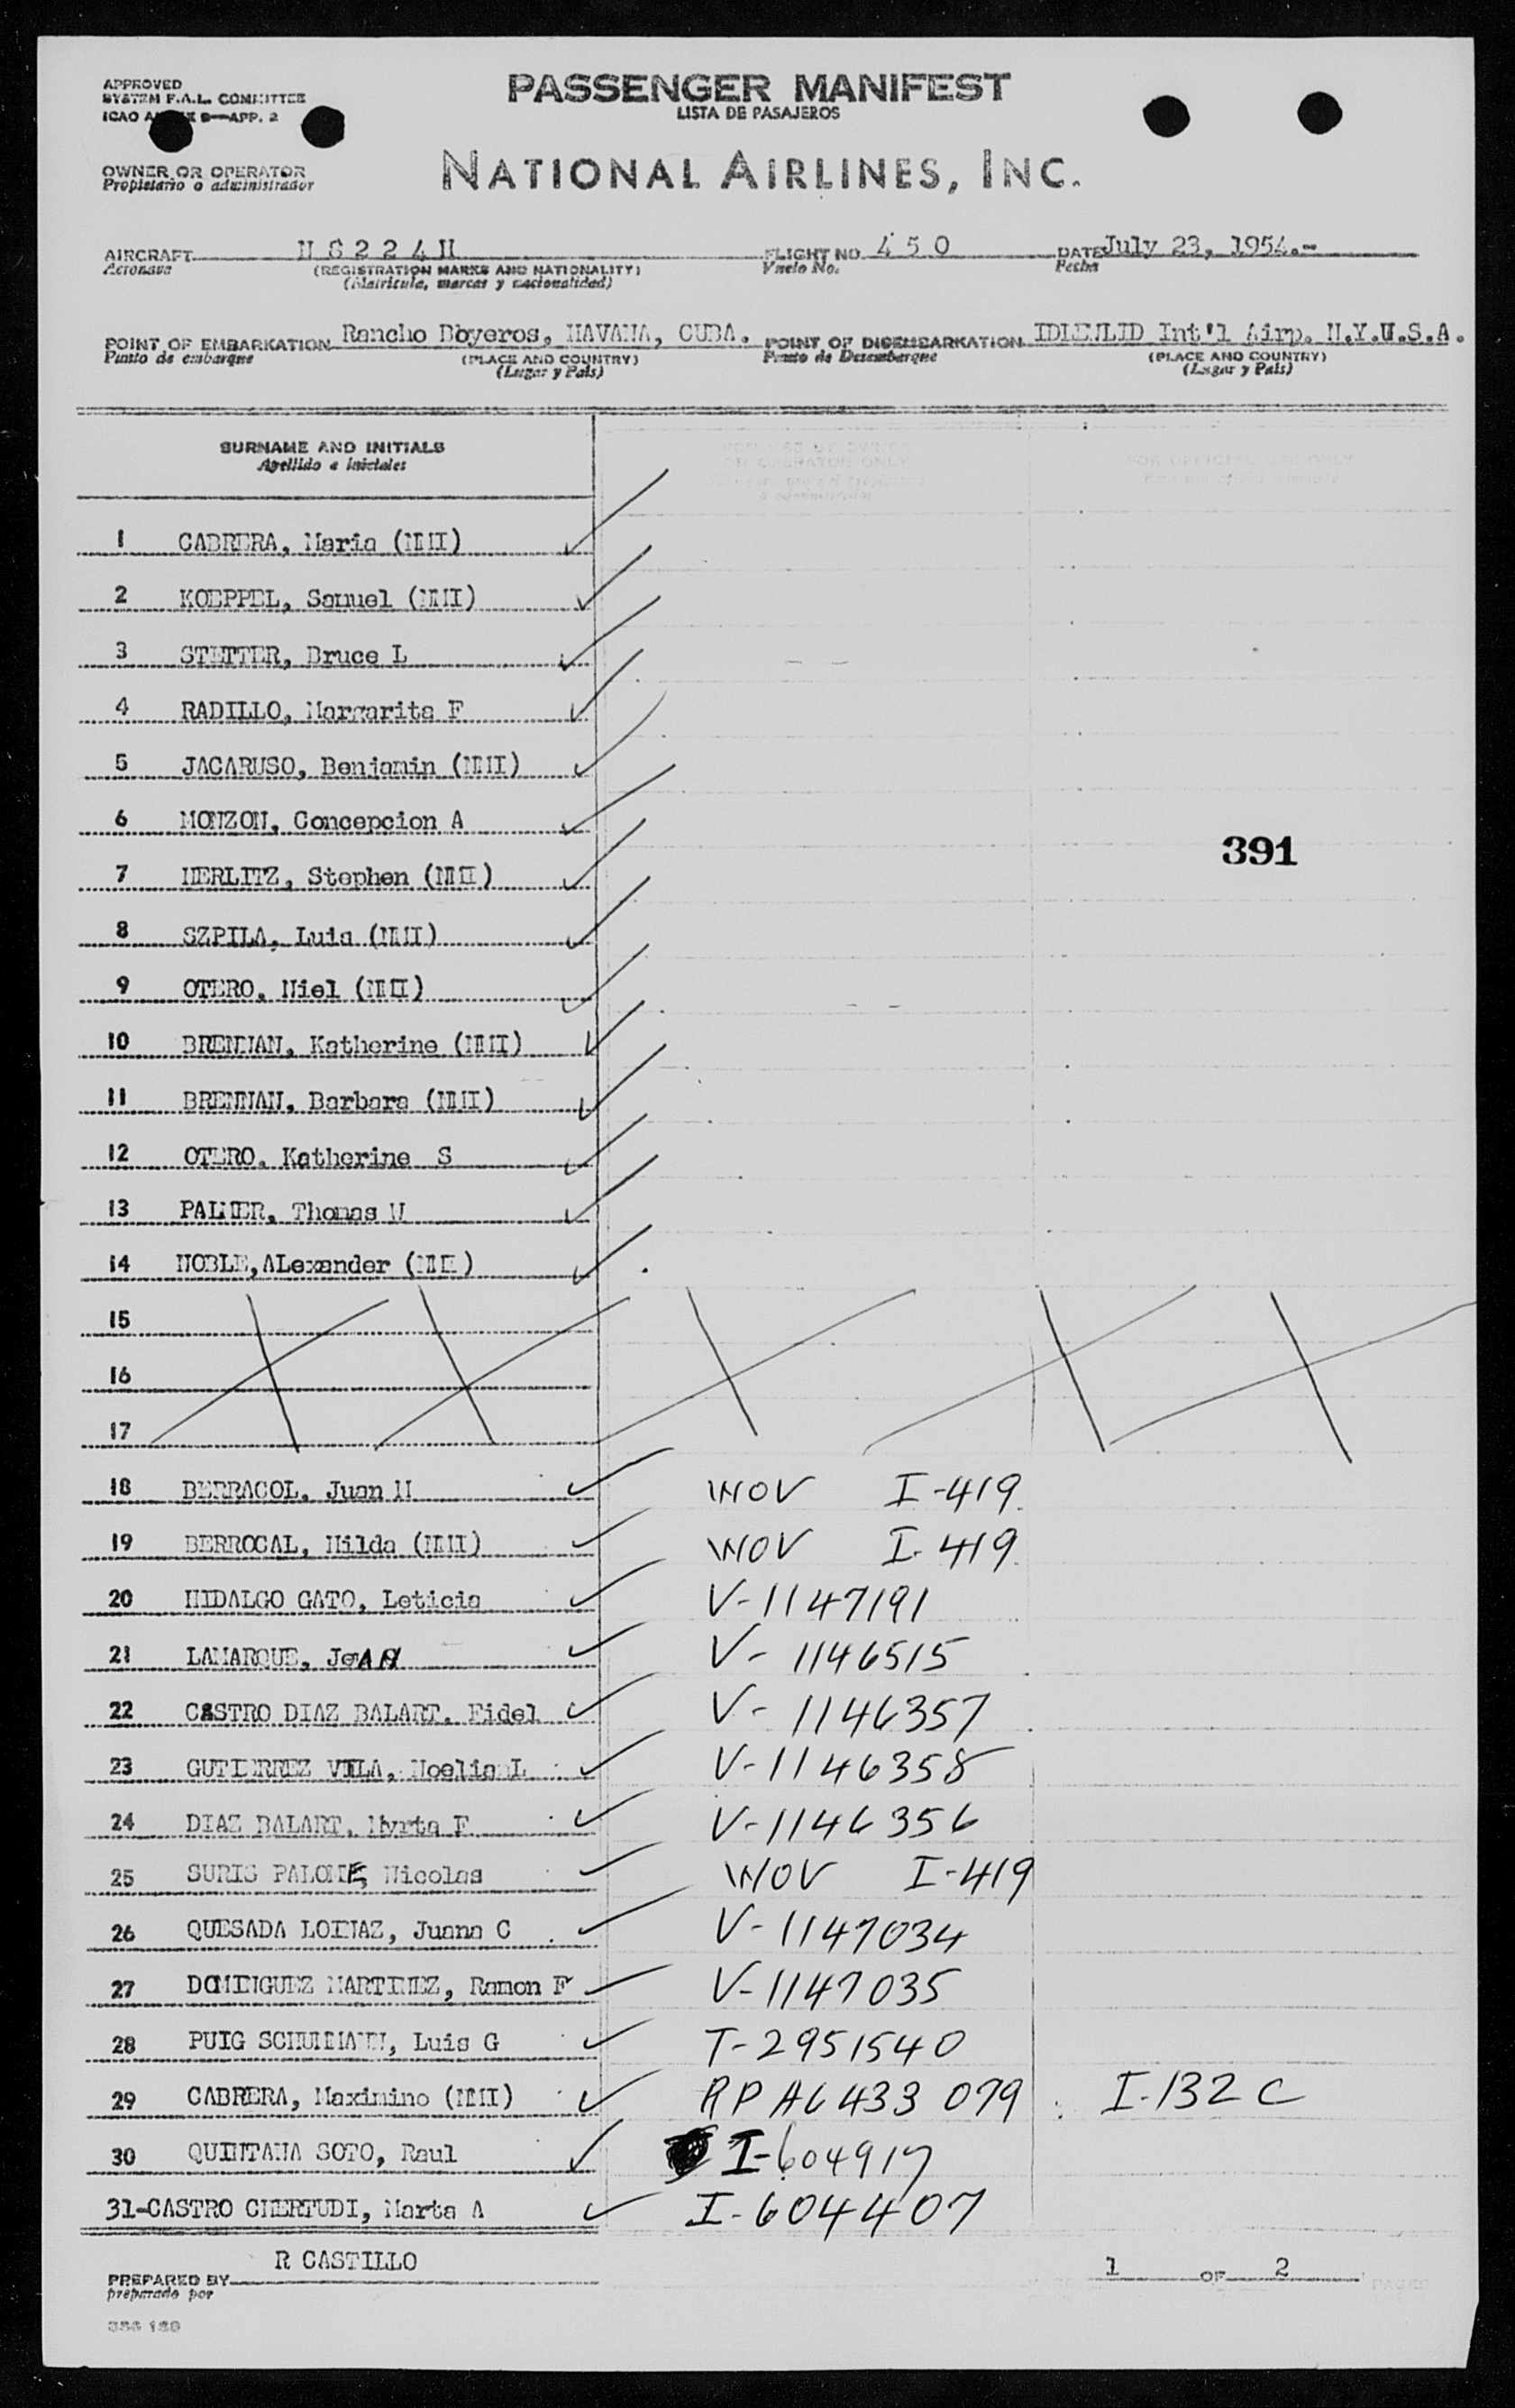 APPROVED
SYSTEM F.A.L. COMMITTEE
ICAO 9—APP. 2
PASSENGER MANIFEST
LISTA DE PASAJEROS
OWNER OR OPERATOR
Propietario o administrador
NATIONAL AIRLINES, INC.
AIRCRAFT N 8 2 2 4 H FLIGHT NO. 4 5 0 DATE July 23, 1954.-
Aeronave (REGISTRATION MARKS AND NATIONALITY) Vuelo No. Fecha
(Matricula, marcas y nacionalidad)
POINT OF EMBARKATION Rancho Boyeros, HAVANA, CUBA. POINT OF DISEMBARKATION IDLEWLID Int'l Airp. N.Y.U.S.A.
Punto de embarque (PLACE AND COUNTRY) Punto de Desembarque (PLACE AND COUNTRY)
(Lugar y Pais) (Lugar y Pais)
SURNAME AND INITIALS
Apellido e iniciales
FOR OFFICIAL USE ONLY
1 CABRERA, Maria (NMI)
2 KOEPPEL, Samuel (NMI)
3 STETTER, Bruce L
4 RADILLO, Margarita F
5 JACARUSO, Benjamin (NMI)
6 MONZON, Concepcion A
391
7 HERLITZ, Stephen (NMI)
8 SZPILA, Luis (NMI)
9 OTERO, Niel (NMI)
10 BRENNAN, Katherine (NMI)
11 BRENNAN, Barbara (NMI)
12 OTERO, Katherine S
13 PALMER, Thomas W
14 NOBLE, ALexander (NMI)
15
16
17
18 BERRACOL, Juan M WOV I-419
19 BERROCAL, Hilda (NMI) WOV I-419
20 HIDALGO GATO, Leticia V-1147191
21 LAMARQUE, V-1146515
22 CASTRO DIAZ BALART, Fidel V-1146357
23 GUTIERREZ VILA, Noelia L V-1146358
24 DIAZ BALART, Myrta F V-1146356
25 SURIS PALOME, Nicolas WOV I-419
26 QUESADA LOINAZ, Juana C V-1147034
27 DOMINGUEZ MARTINEZ, Ramon F V-1147035
28 PUIG SCHUMANN, Luis G T-2951540
29 CABRERA, Maximino (NMI) RP A6 433 079 I-132 C
30 QUINTANA SOTO, Raul I-604917
31-CASTRO CHERTUDI, Marta A I-604407
PREPARED BY R CASTILLO 1 OF 2 PAGES
preparado por